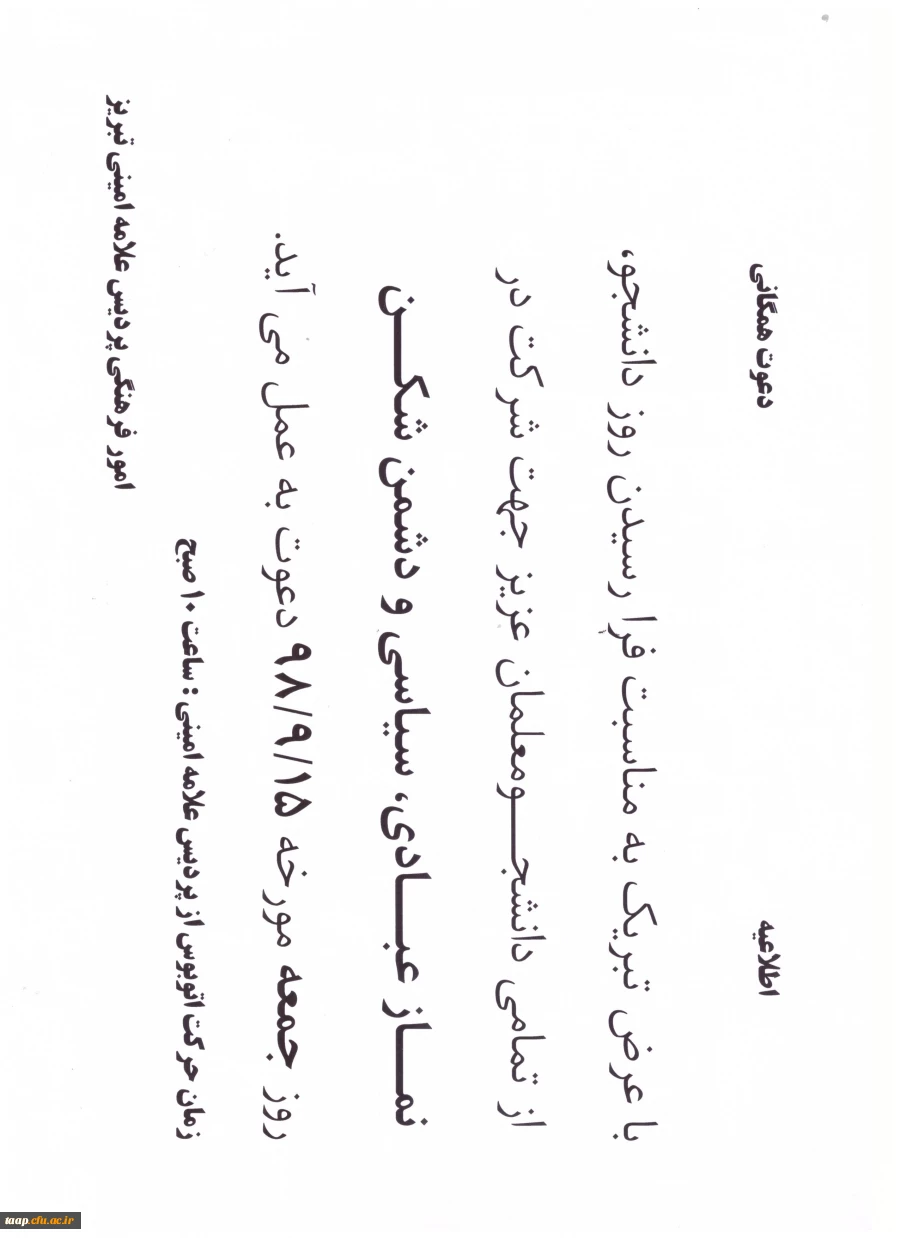 اطلاعیه
دعوت همگانی
با عرض تبریک به مناسبت فرا رسیدن روز دانشجو،
از تمامی دانشجــومعلمان عزیز جهت شرکت در
نمــاز عبــادی، سیاسی و دشمن شکــن
روز جمعه مورخه ۹۸/۹/۱۵ دعوت به عمل می آید.
زمان حرکت اتوبوس از پردیس علامه امینی : ساعت ۱۰ صبح
امور فرهنگی پردیس علامه امینی تبریز
taap.cfu.ac.ir